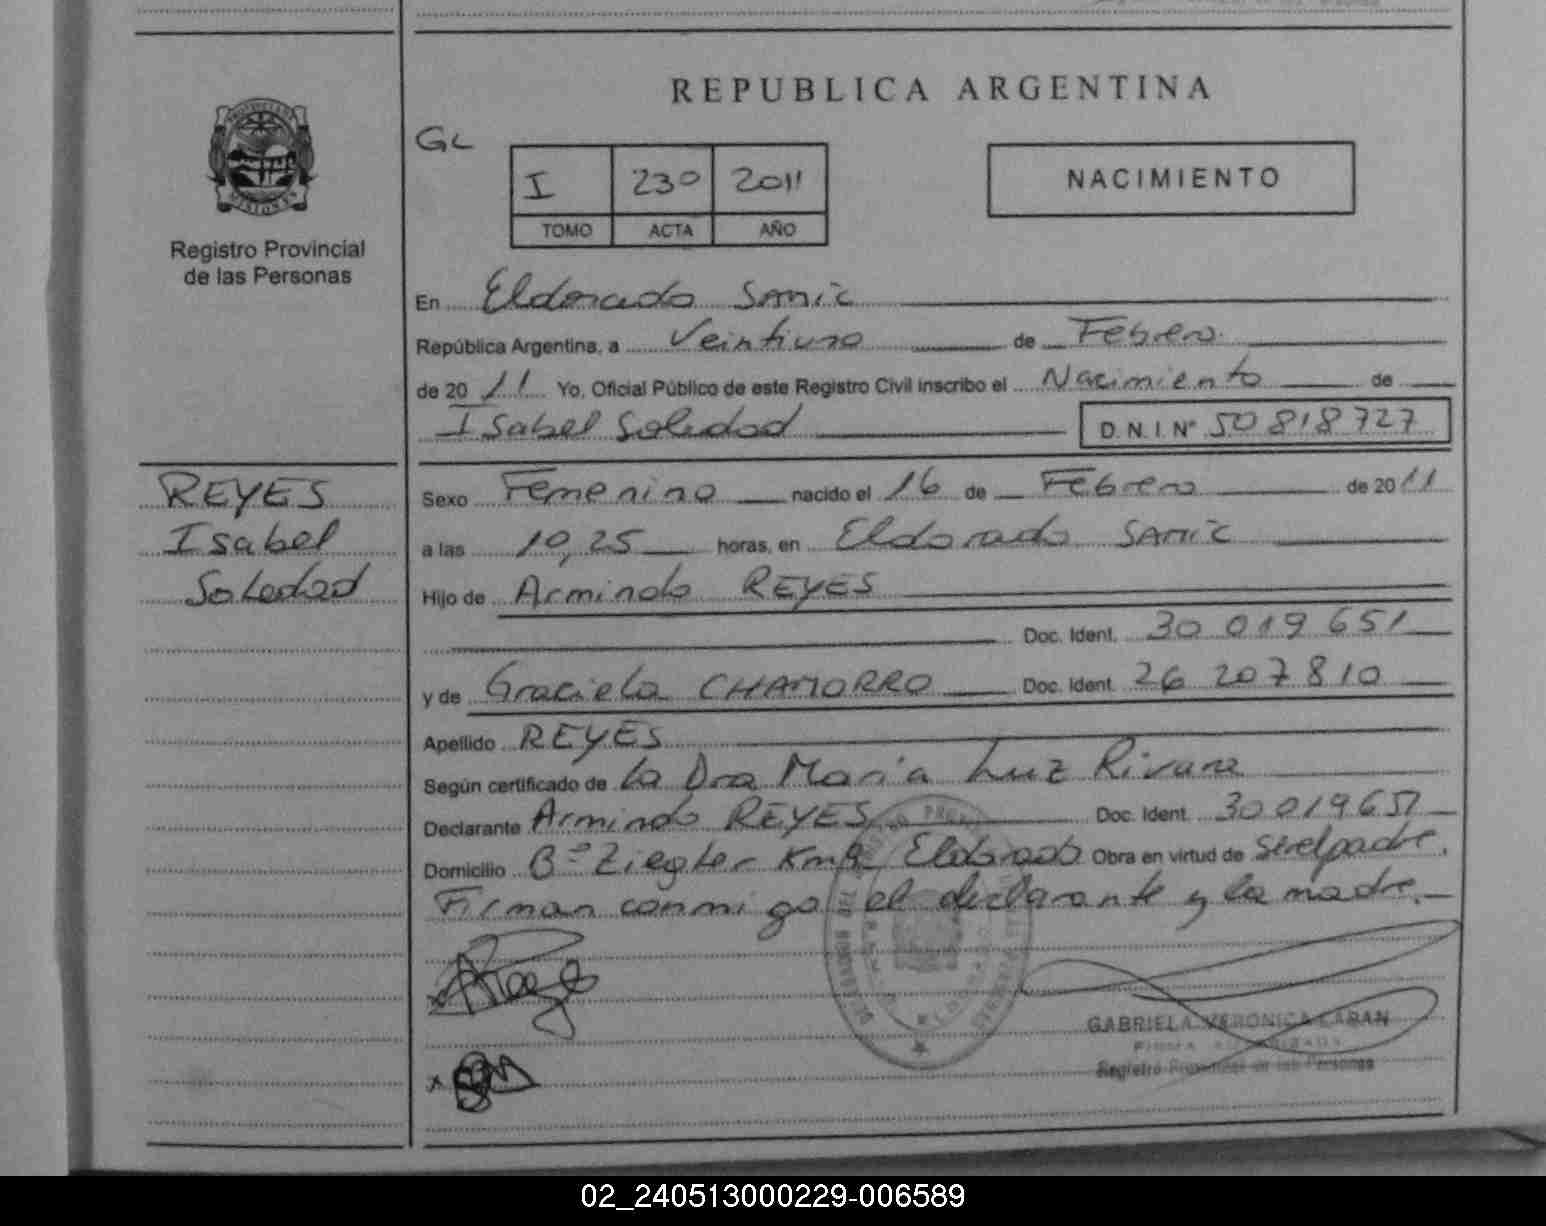 REPUBLICA ARGENTINA
Registro Provincial
de las Personas
GL
I 230 2011
TOMO ACTA AÑO
NACIMIENTO
En Eldorado Samic
República Argentina, a Veintiuno de Febrero
de 2011 Yo, Oficial Público de este Registro Civil inscribo el Nacimiento de
Isabel Soledad D.N.I. Nº 50 818 727
REYES
Isabel
Soledad
Sexo Femenino nacido el 16 de Febrero de 2011
a las 10,25 horas, en Eldorado SAMIC
Hijo de Armindo REYES
Doc. Ident. 30 019 651
y de Graciela CHAMORRO Doc. Ident. 26 207 810
Apellido REYES
Según certificado de La Dra Maria Luz Rivara
Declarante Armindo REYES Doc. Ident. 30 019 651
Domicilio Bº Ziegler Km Eldorado Obra en virtud de ser el padre.
Firman conmigo el declarante y la madre.
GABRIELA VERONICA
FIRMA AUTORIZADA
Registro Provincial de las Personas
02_240513000229-006589